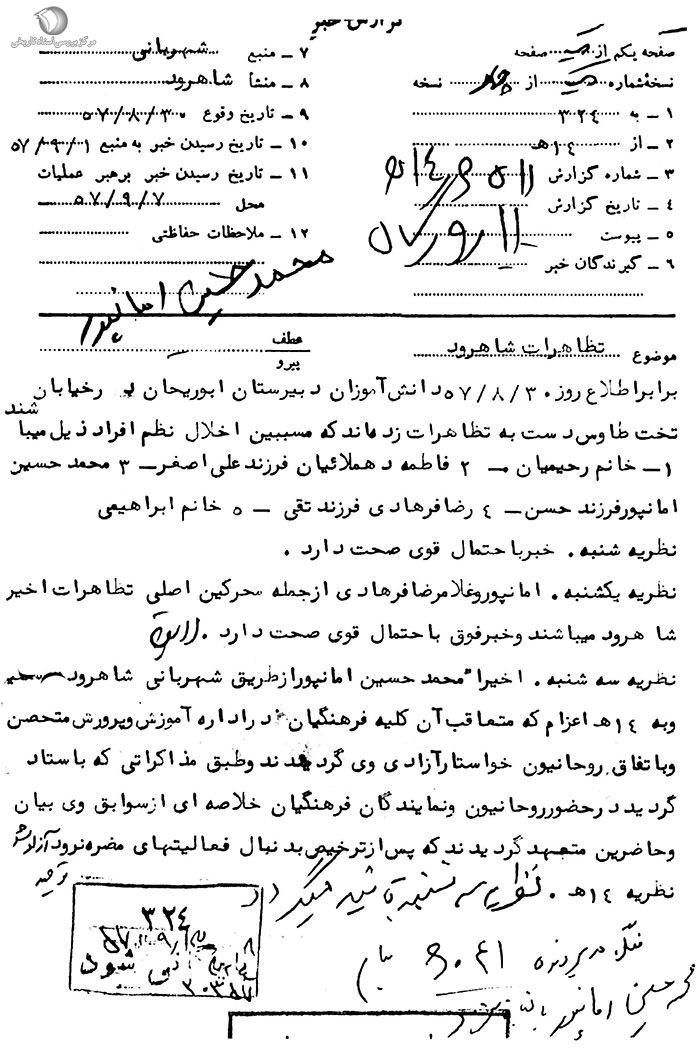 مرکز بررسی اسناد تاریخی
گزارش خبر
صفحه یکم از یک صفحه
نسخه شماره یک از چهار نسخه
۱ ـ به ۳۲٤
۲ ـ از ۱٤هـ
۳ ـ شماره گزارش
٤ ـ تاریخ گزارش
۵ ـ پیوست
۶ ـ گیرندگان خبر
۷ ـ منبع شهربانی
۸ ـ منشأ شاهرود
۹ ـ تاریخ وقوع ۵۷/۸/۳۰
۱۰ ـ تاریخ رسیدن خبر به منبع ۵۷/۹/۱
۱۱ ـ تاریخ رسیدن خبر برهبر عملیات
محل ۵۷/۹/۷
۱۲ ـ ملاحظات حفاظتی
محمد حسین امانپور
موضوع تظاهرات شاهرود
عطف
پیرو
برابر اطلاع روز ۵۷/۸/۳۰ دانش آموزان دبیرستان ابوریحان در خیابان
تخت طاوس دست به تظاهرات زده اند که مسببین اخلال نظم افراد ذیل میبا شند
۱ـ خانم رحیمیان ـ ۲ فاطمه ده ملائیان فرزند علی اصغر ـ ۳ محمد حسین
امانپور فرزند حسن ـ ٤ رضا فرهادی فرزند تقی ـ ۵ خانم ابراهیمی
نظریه شنبه . خبر با حتمال قوی صحت دارد .
نظریه یکشنبه . امانپور و غلامرضا فرهادی از جمله محرکین اصلی تظاهرات اخیر
شا هرود میبا شند و خبر فوق با حتمال قوی صحت دارد .
نظریه سه شنبه . اخیرا" محمد حسین امانپور از طریق شهربانی شاهرود
و به ۱٤هـ اعزام که متعاقب آن کلیه فرهنگیان در اداره آموزش و پرورش متحصن
و با تفاق روحانیون خواستار آزادی وی گردیدند و طبق مذاکراتی که با ستاد
گردید در حضور روحانیون و نمایندگان فرهنگیان خلاصه ای از سوابق وی بیان
و حاضرین متعهد گردیدند که پس از ترخیص بدنبال فعالیتهای مضره نرود آزاد شد
نظریه ۱٤هـ . نظریه سه شنبه تائید میگردد
۳۲٤
محمد حسین امانپور